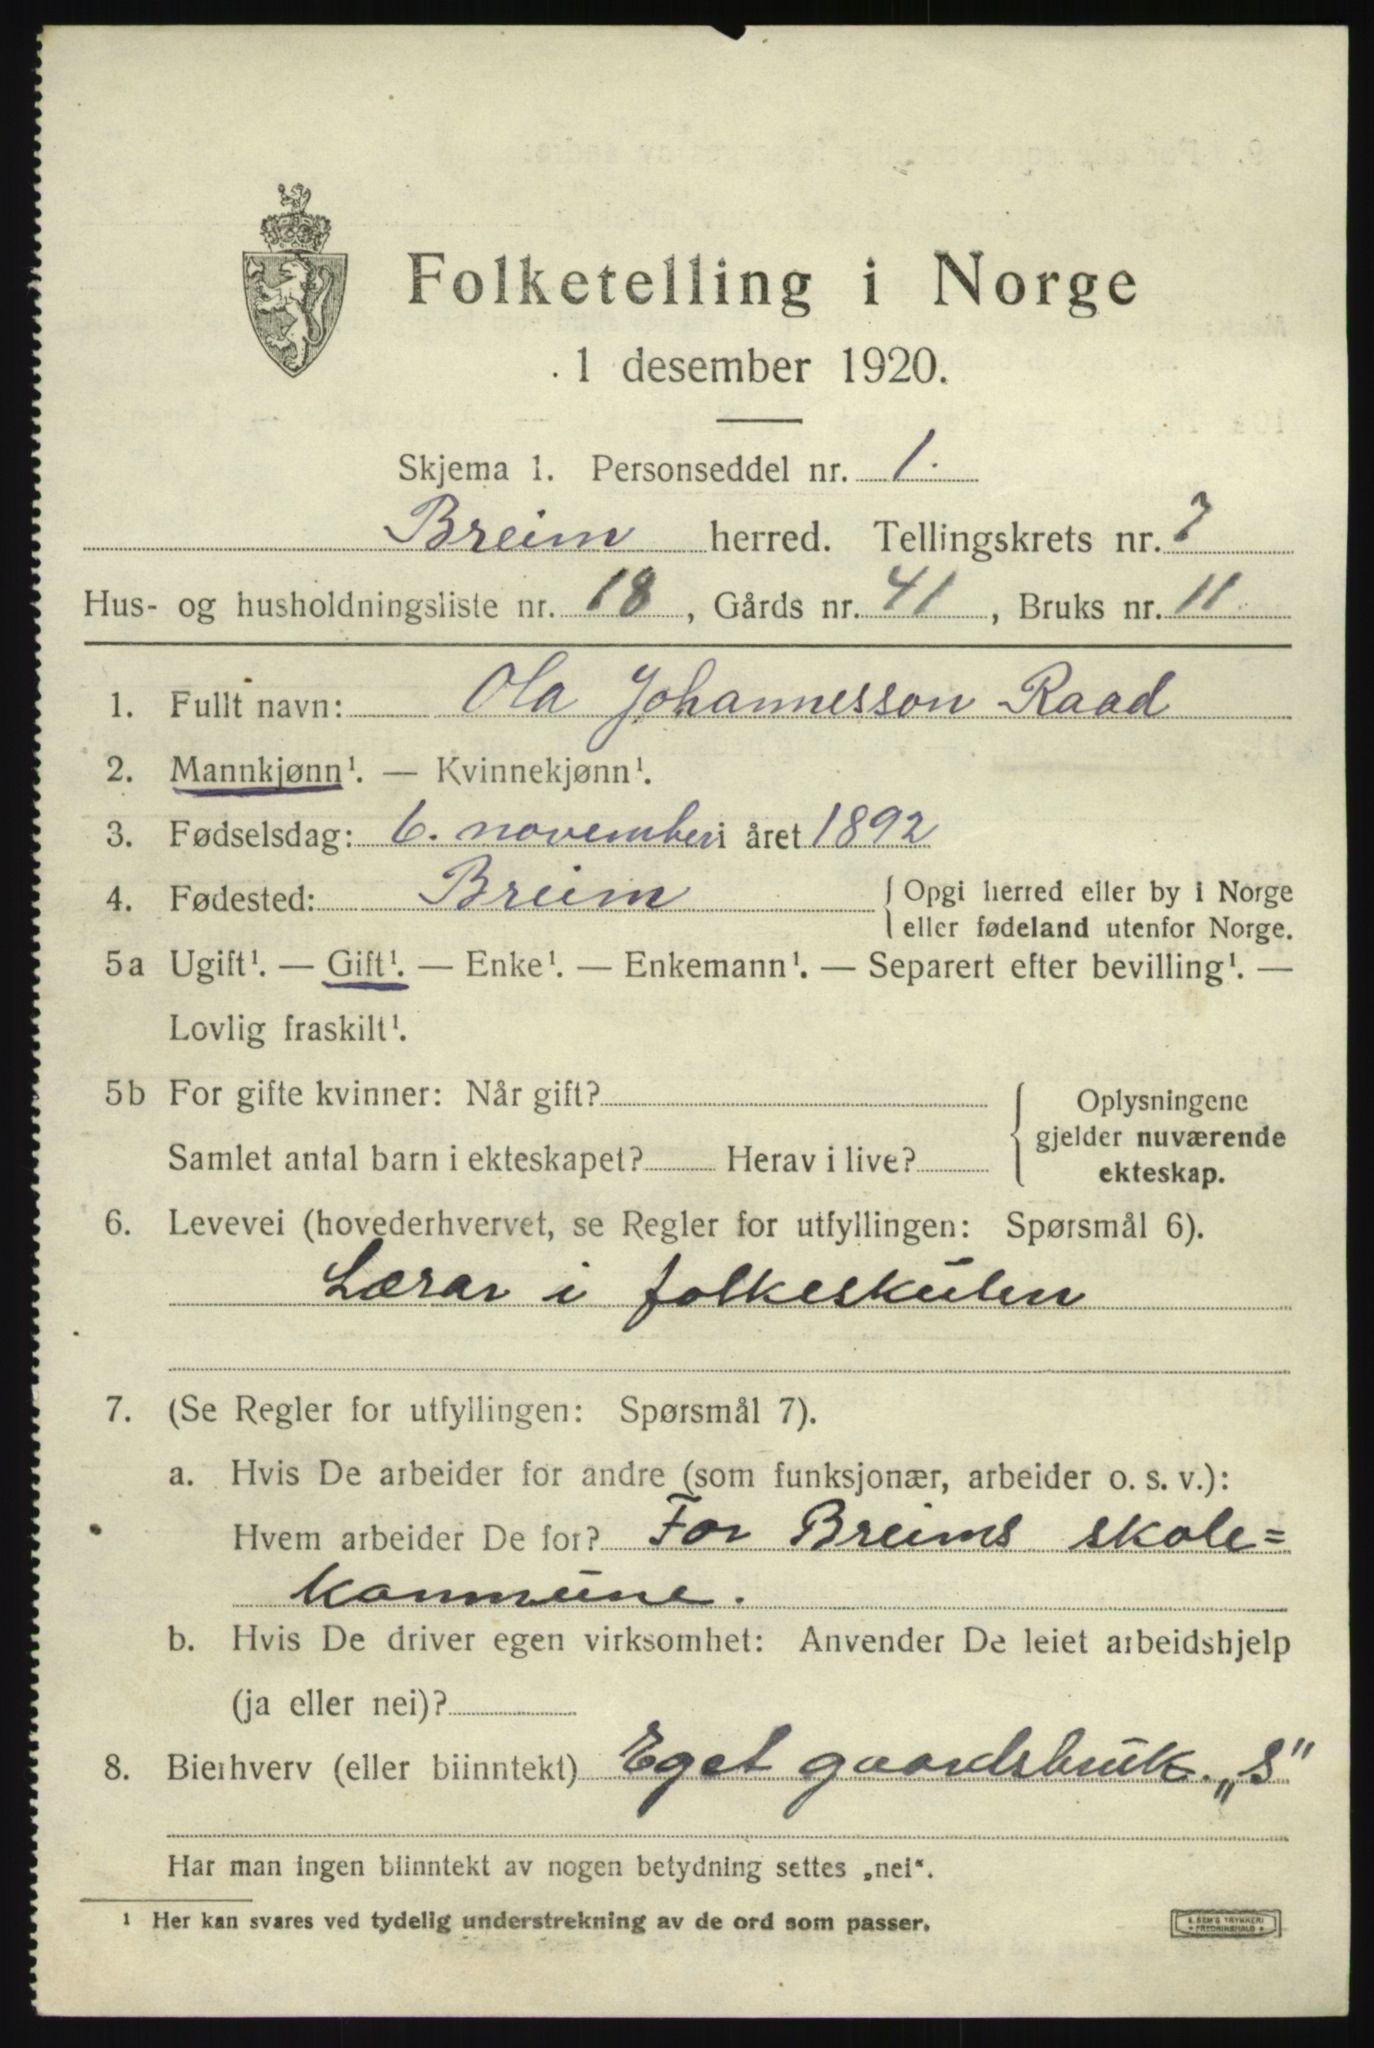 Folketelling i Norge
1 desember 1920.
Skjema 1. Personseddel nr. 1.
Breim herred. Tellingskrets nr. 7
Hus- og husholdningsliste nr. 18, Gårds nr. 41, Bruks nr. 11
1. Fullt navn: Ola Johannesson Raad
2. Mannkjønn¹. — Kvinnekjønn¹.
3. Fødselsdag: 6. november i året 1892
4. Fødested: Breim { Opgi herred eller by i Norge
eller fødeland utenfor Norge.
5a Ugift¹. — Gift¹. — Enke¹. — Enkemann¹. — Separert efter bevilling¹. —
Lovlig fraskilt¹.
5b For gifte kvinner: Når gift?
Samlet antal barn i ekteskapet? Herav i live?
{ Oplysningene
gjelder nuværende
ekteskap.
6. Levevei (hovederhvervet, se Regler for utfyllingen: Spørsmål 6).
Lærar i folkeskulen
7. (Se Regler for utfyllingen: Spørsmål 7).
a. Hvis De arbeider for andre (som funksjonær, arbeider o. s. v.):
Hvem arbeider De for? For Breims skole=
kommune.
b. Hvis De driver egen virksomhet: Anvender De leiet arbeidshjelp
(ja eller nei)?
8. Bierhverv (eller biinntekt) Eget gaardsbruk. „S"
Har man ingen biinntekt av nogen betydning settes „nei“.
¹ Her kan svares ved tydelig understrekning av de ord som passer.
E. SEM'S TRYKKERI
FREDRIKSHALD